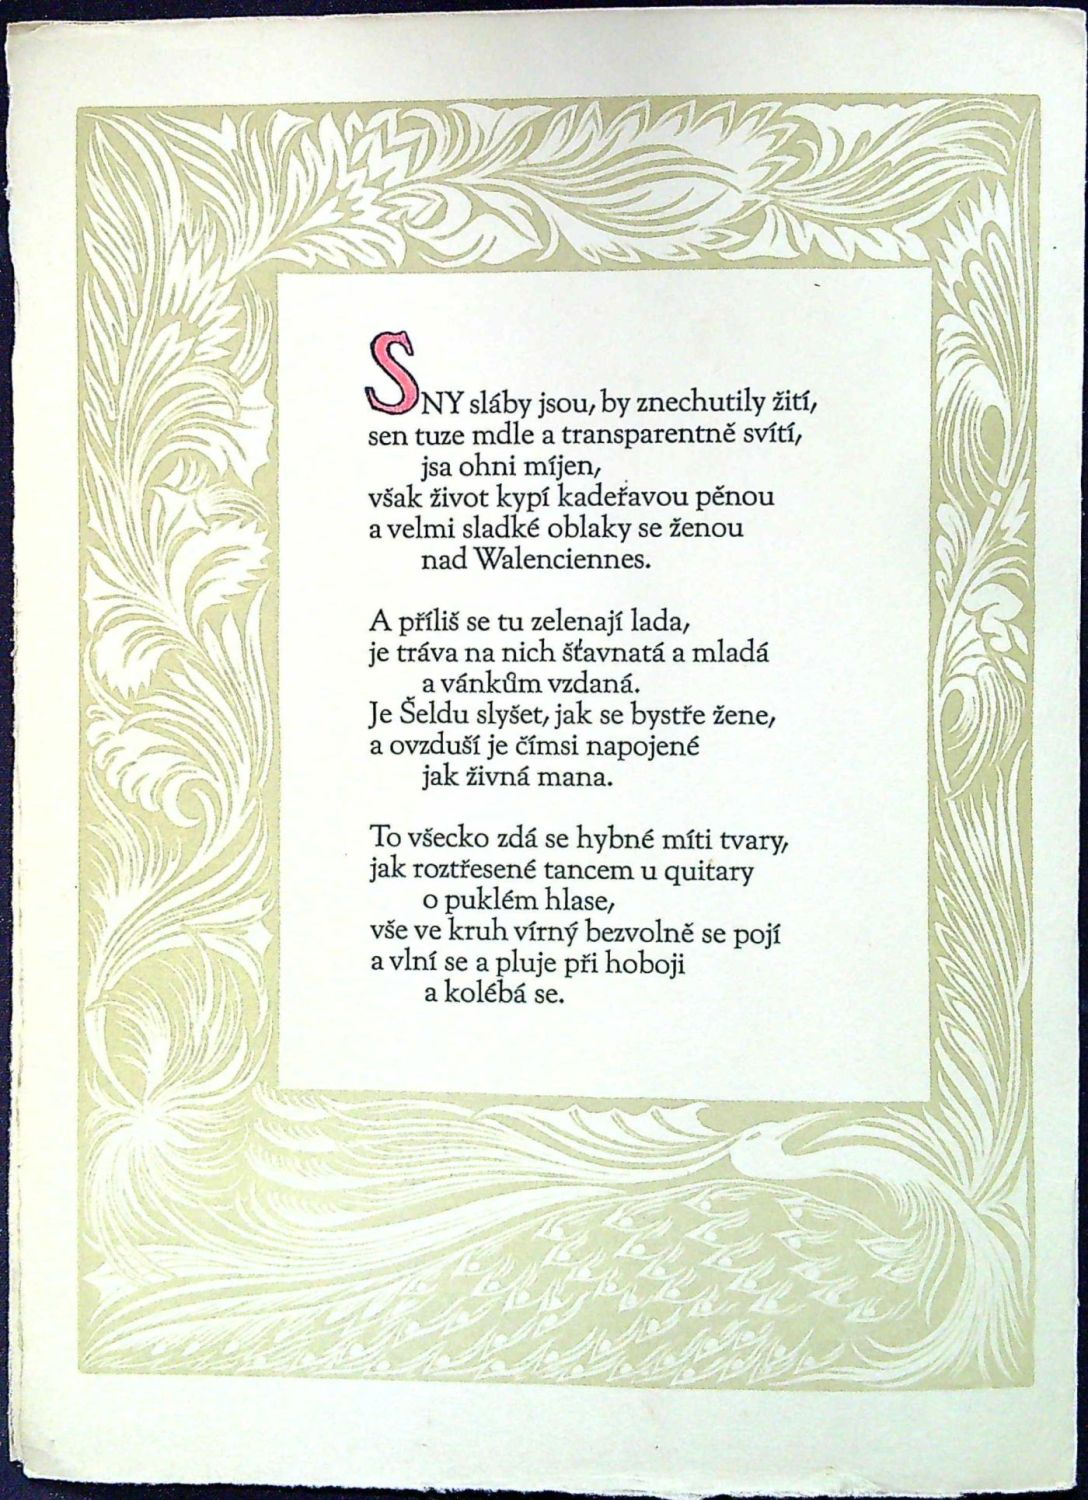 SNY sláby jsou, by znechutily žití,
sen tuze mdle a transparentně svítí,
jsa ohni míjen,
však život kypí kadeřavou pěnou
a velmi sladké oblaky se ženou
nad Walenciennes.
A příliš se tu zelenají lada,
je tráva na nich šťavnatá a mladá
a vánkům vzdaná.
Je Šeldu slyšet, jak se bystře žene,
a ovzduší je čímsi napojené
jak živná mana.
To všecko zdá se hybné míti tvary,
jak roztřesené tancem u quitary
o puklém hlase,
vše ve kruh vírný bezvolně se pojí
a vlní se a pluje při hoboji
a kolébá se.